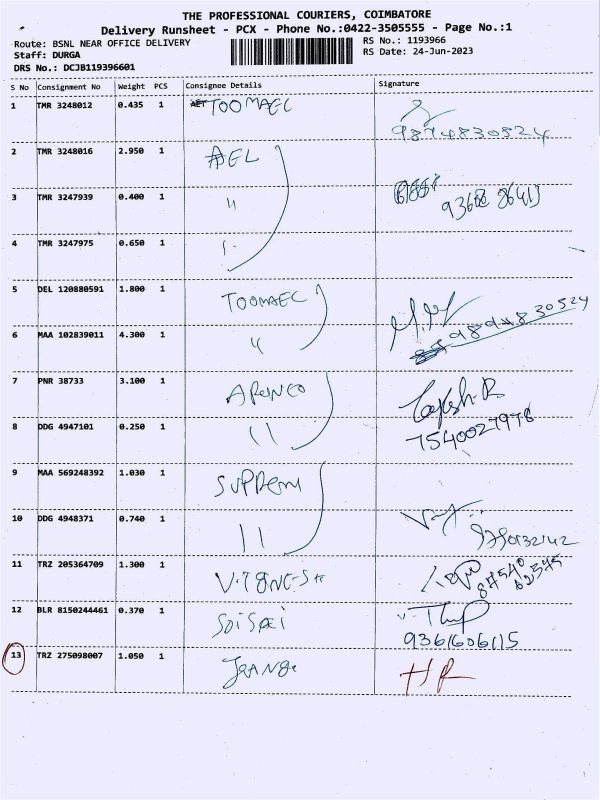 THE PROFESSIONAL COURIERS, COIMBATORE
Delivery Runsheet - PCX - Phone No.:0422-3505555 - Page No.:1
Route: BSNL NEAR OFFICE DELIVERY
RS No.: 1193966
Staff: DURGA
RS Date: 24-Jun-2023
DRS No.: DCJB119396601
S No Consignment No Weight PCS Consignee Details Signature
1 TMR 3248012 0.435 1 TOOMAEC
2 TMR 3248016 2.950 1 AEL
3 TMR 3247939 0.400 1 "
4 TMR 3247975 0.650 1
5 DEL 120880591 1.800 1 TOOMAEC
6 MAA 102839011 4.300 1 "
7 PNR 38733 3.100 1
7540027978
8 DDG 4947101 0.250 1 "
9 MAA 569248392 1.030 1
10 DDG 4948371 0.740 1 "
11 TRZ 205364709 1.300 1
12 BLR 8150244461 0.370 1
9361606115
13 TRZ 275098007 1.050 1